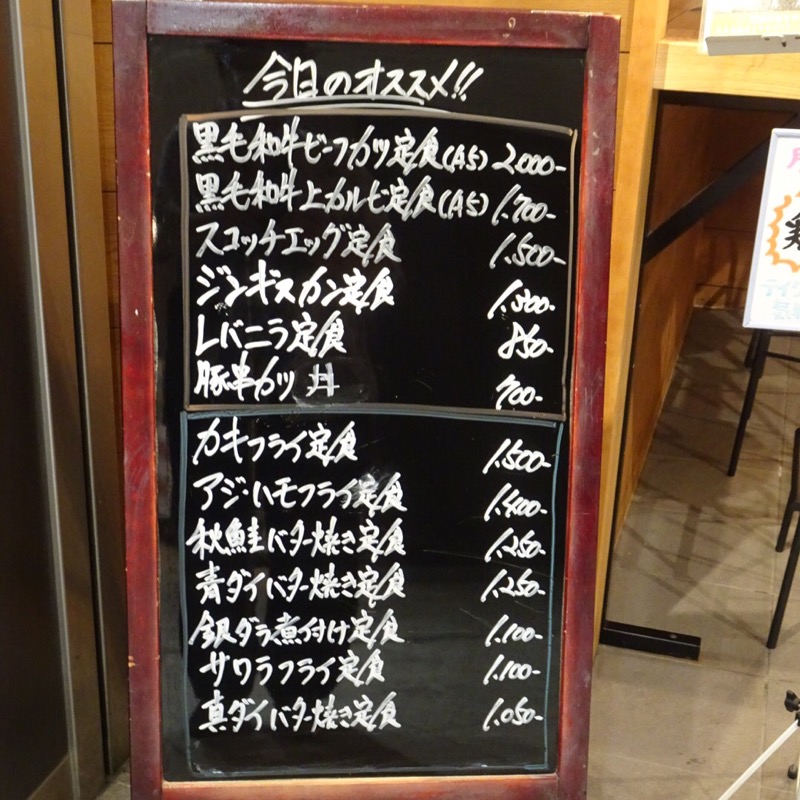 今日のオススメ!!
黒毛和牛ビーフカツ定食(A5) 2,000-
黒毛和牛上カルビ定食(A5) 1,700-
スコッチエッグ定食 1,500-
ジンギスカン定食 1,300-
レバニラ定食 850-
豚串カツ丼 700-
カキフライ定食 1,500-
アジ・ハモフライ定食 1,400-
秋鮭バター焼き定食 1,250-
青ダイバター焼き定食 1,250-
銀ダラ煮付け定食 1,100-
サワラフライ定食 1,100-
真ダイバター焼き定食 1,050-